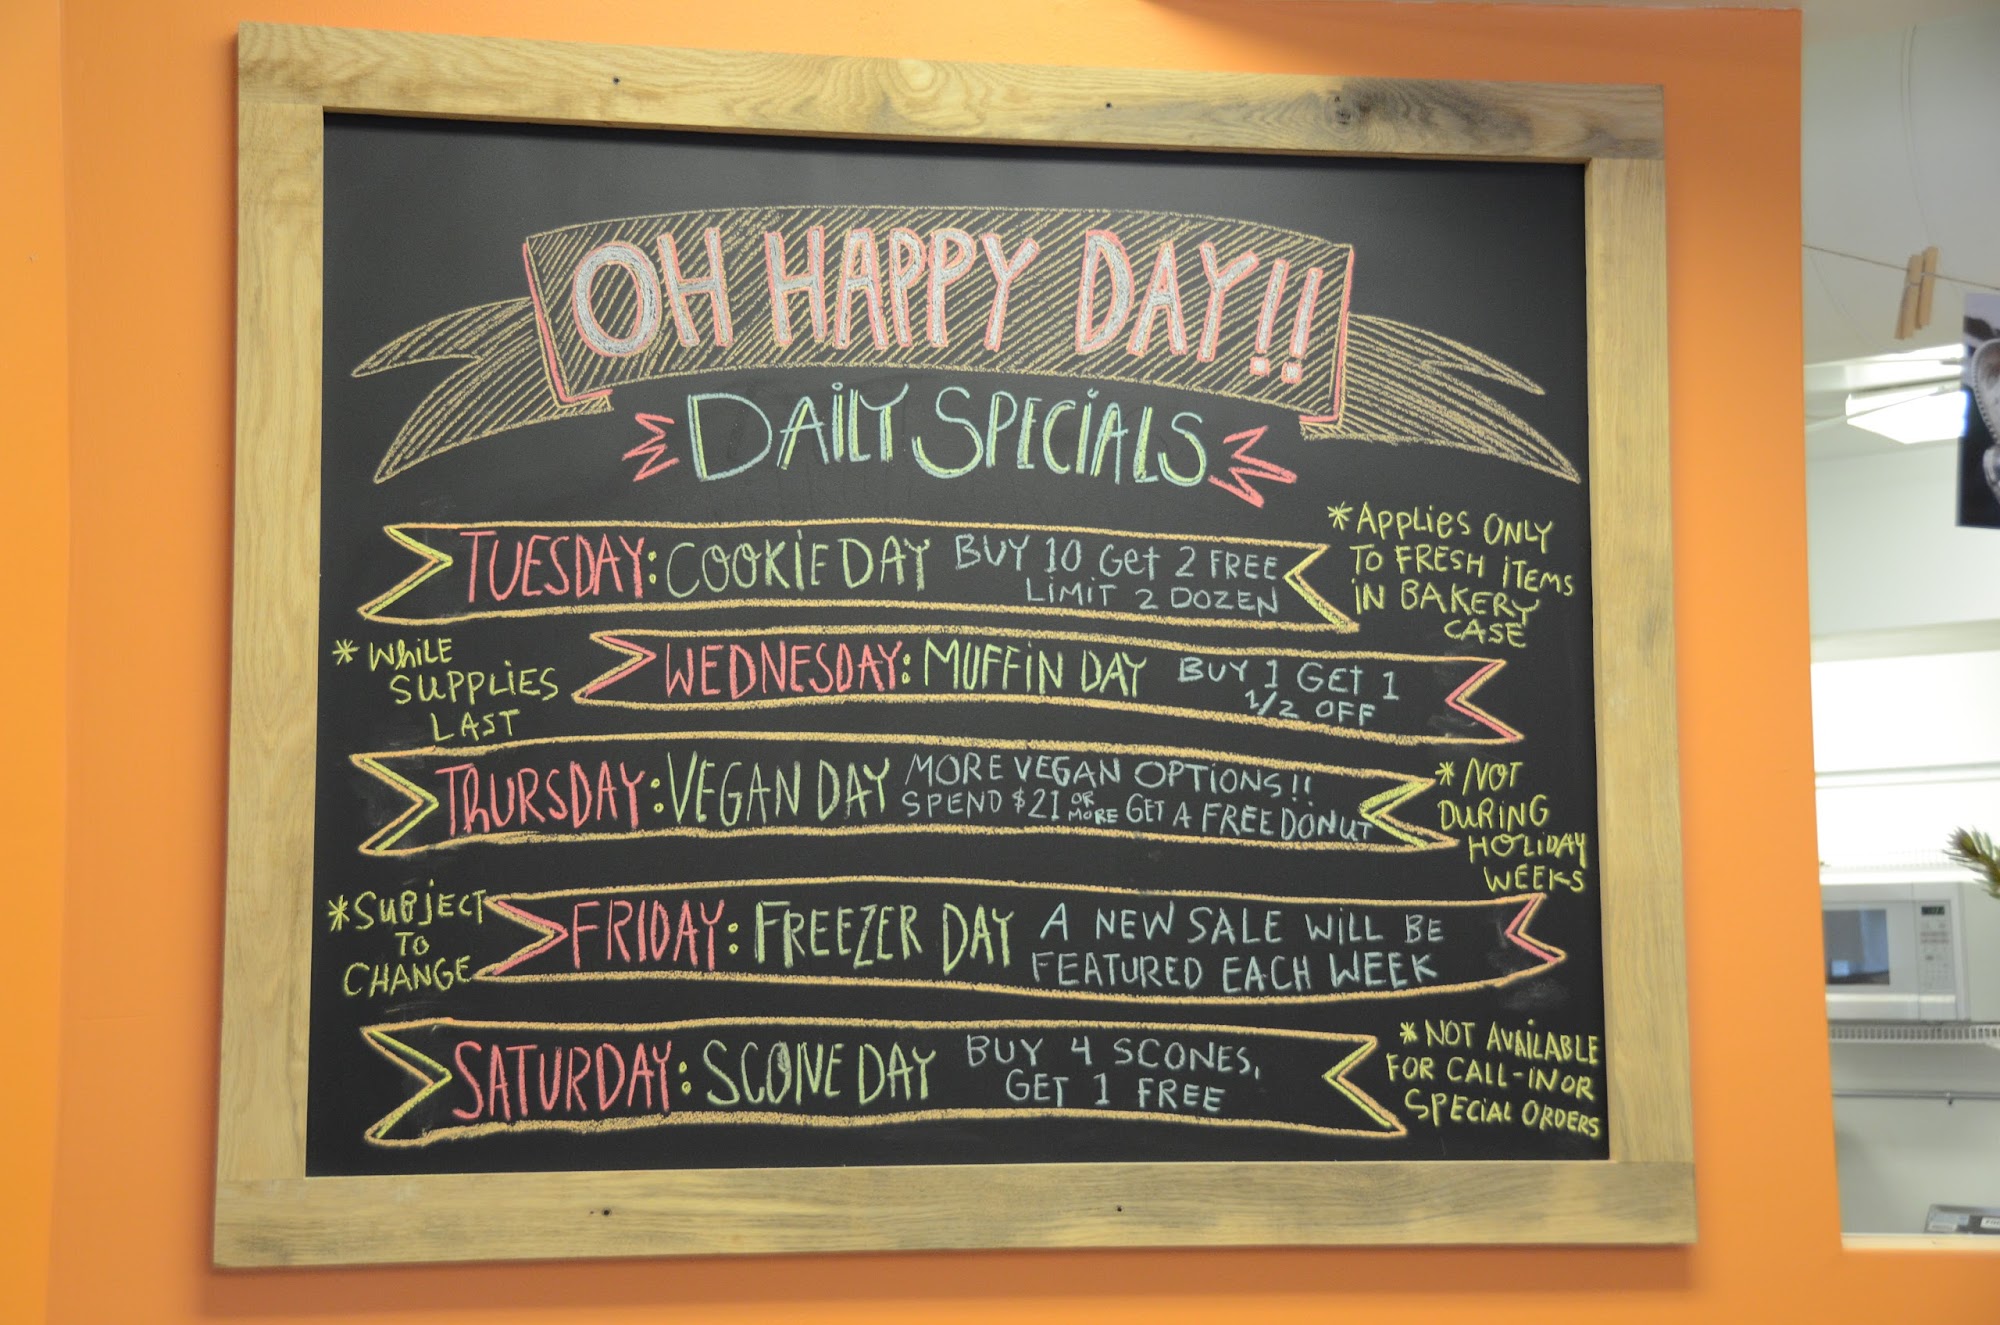 OH HAPPY DAY!!
DAiLY SPECiALS
TUESDAY: COOKiE DAY
BUY 10 Get 2 FREE
LiMiT 2 DOZEN
*APPLiES ONLY
TO FRESH iTEMS
iN BAKERY
CASE
*WhiLE
SUPPLiES
LAST
WEDNESDAY: MUFFiN DAY
BUY 1 GEt 1
1/2 OFF
THURSDAY: VEGAN DAY
MORE VEGAN OPTiONS!!
SPEND $21 OR MORE GET A FREE DONUT
*NOT
DURiNG
HOLiDAY
WEEKS
*SUBJECT
TO
CHANGE
FRIDAY: FREEZER DAY
A NEW SALE WiLL BE
FEATURED EACH WEEK
SATURDAY: SCONE DAY
BUY 4 SCONES,
GET 1 FREE
*NOT AVAiLABLE
FOR CALL-iN OR
SPECiAL ORDERS